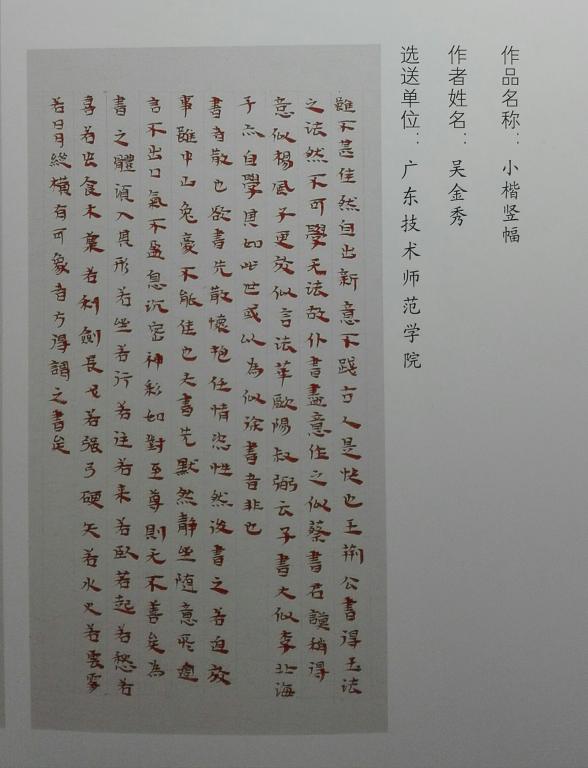 作品名称：小楷竖幅
作者姓名：吴金秀
选送单位：广东技术师范学院
雖不甚佳然自出新意不踐古人是快也王荆公書得无法
之法然不可學无法故仆書盡意作之似蔡書君謨稍得
意似楊風子更放似言法華歐陽叔弼云子書大似李北海
予亦自學其如此世或以為似徐書者非也
書者散也欲書先散懷抱任情恣性然後書之若迫於
事雖中山兔豪不能佳也夫書先默然靜坐隨意所適
言不出口氣不盈息沉密神彩如對至尊則无不善矣為
書之體須入其形若坐若行若往若来若卧若起若愁若
喜若虫食木葉若利劍長戈若强弓硬矢若水火若雲雾
若日月縱横有可象者方得謂之書矣